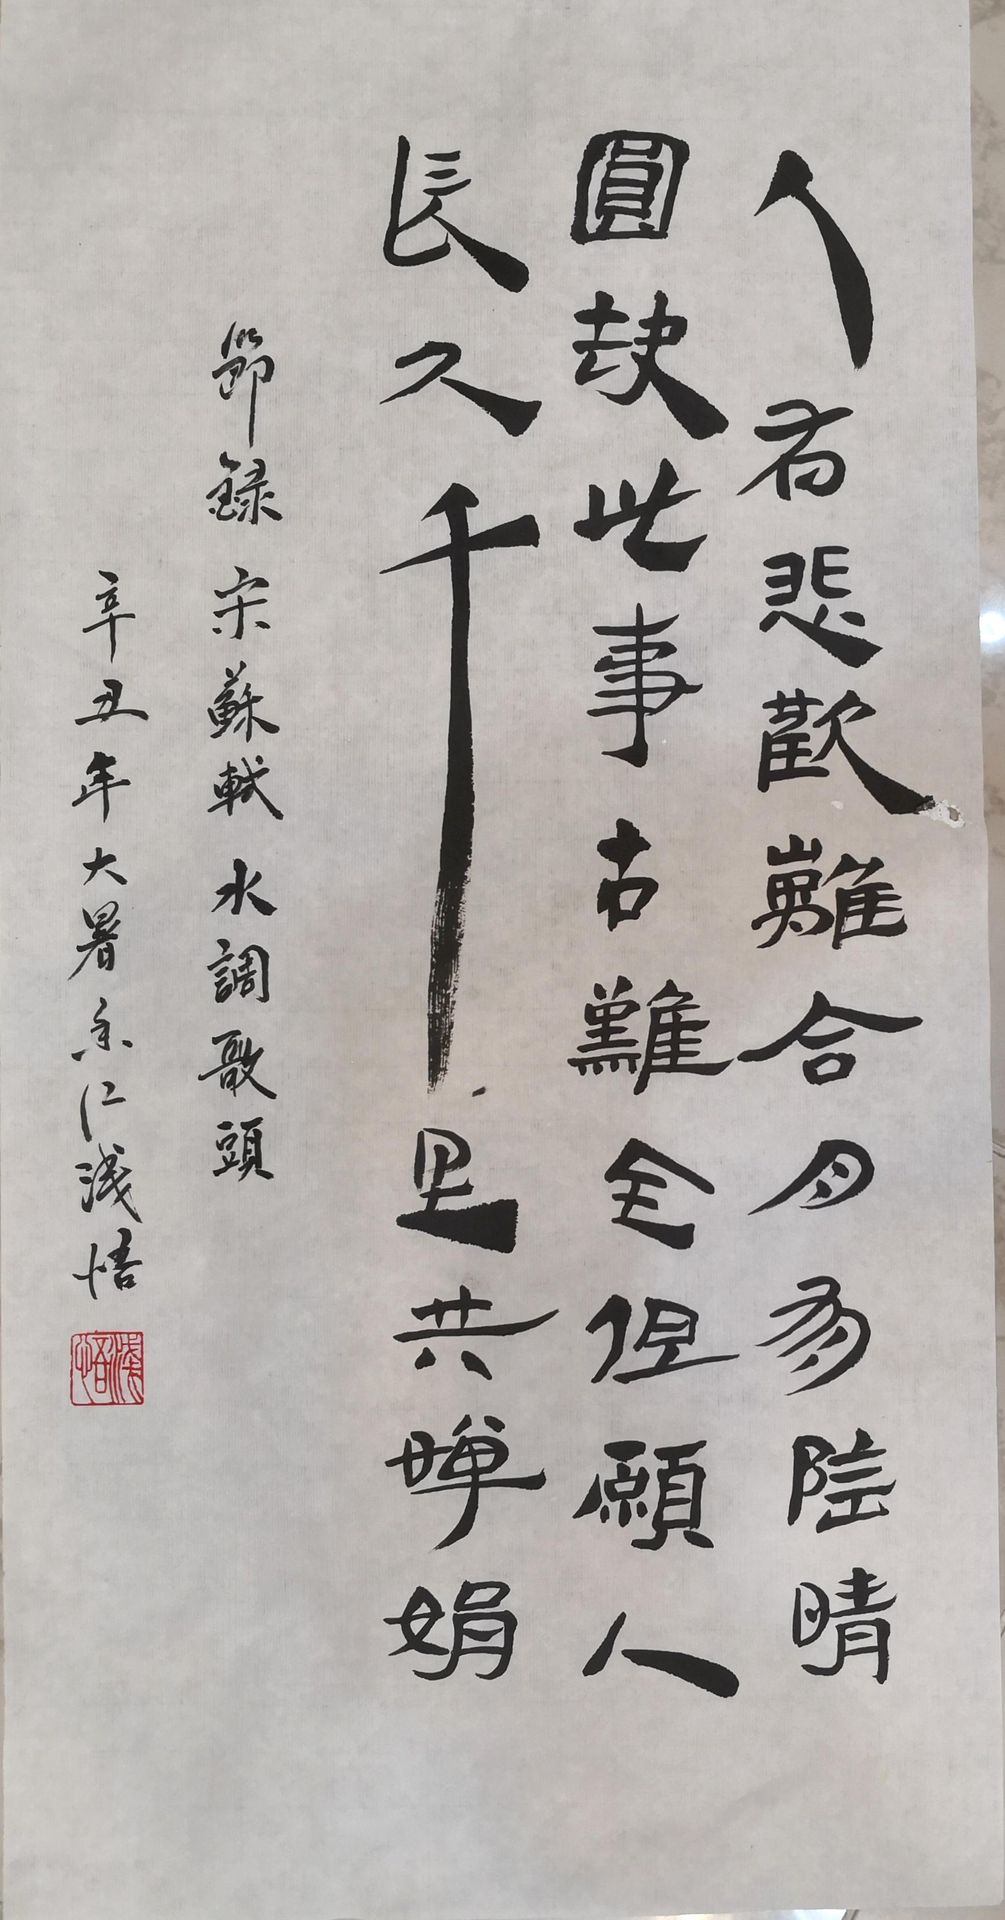 人有悲歡離合月有陰晴
圓缺此事古難全但願人
長久千里共嬋娟
節錄宋蘇軾水調歌頭
辛丑年大暑仁淺悟
淺悟